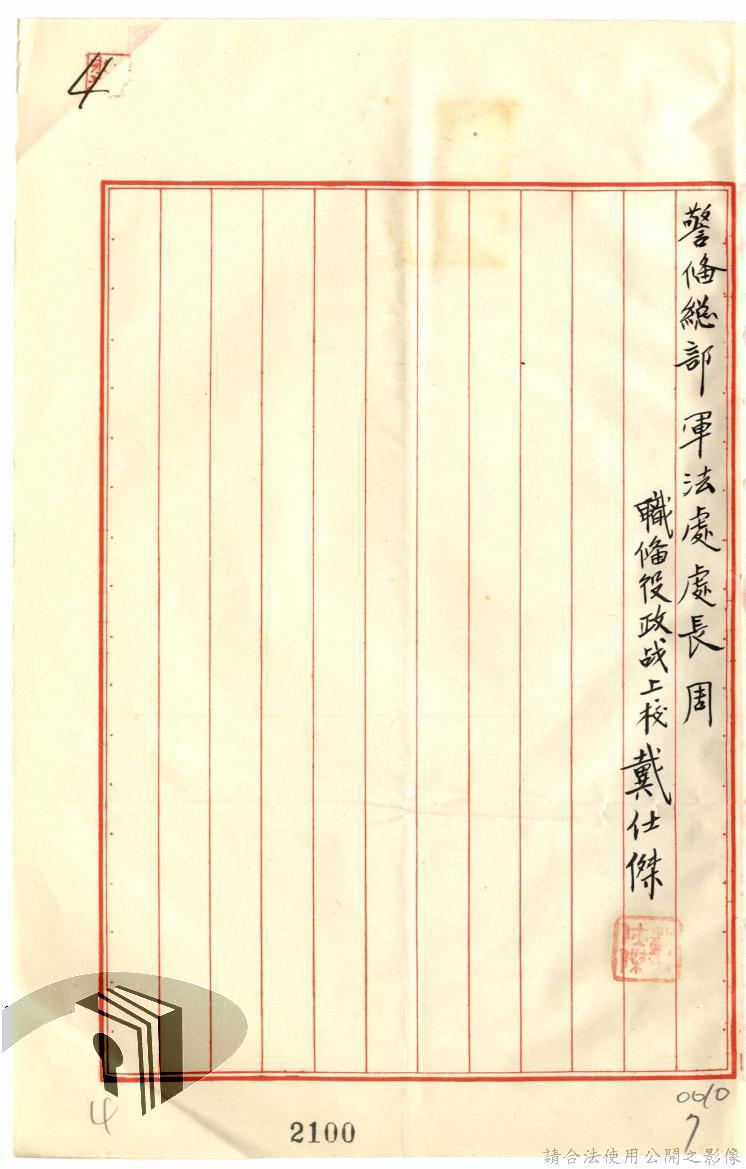 4
警俻總部軍法處處長周
職俻役政战上校戴仕傑
戴仕傑
4
2100
0010
7
請合法使用公開之影像